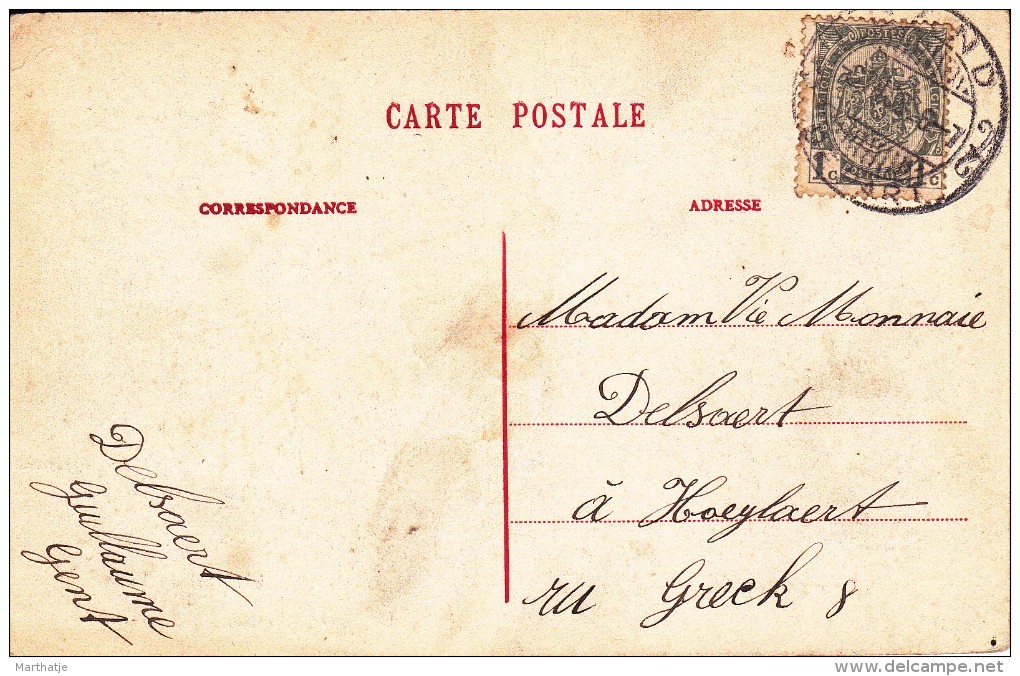 CARTE POSTALE
POSTES
1 C 1 C
CORRESPONDANCE
ADRESSE
Madam Vie Monnaie
Delsaert
à Hoeylaert
ru Greck 8
Delsaert
Guillaime
Gent
Marthatje
www.delcampe.net